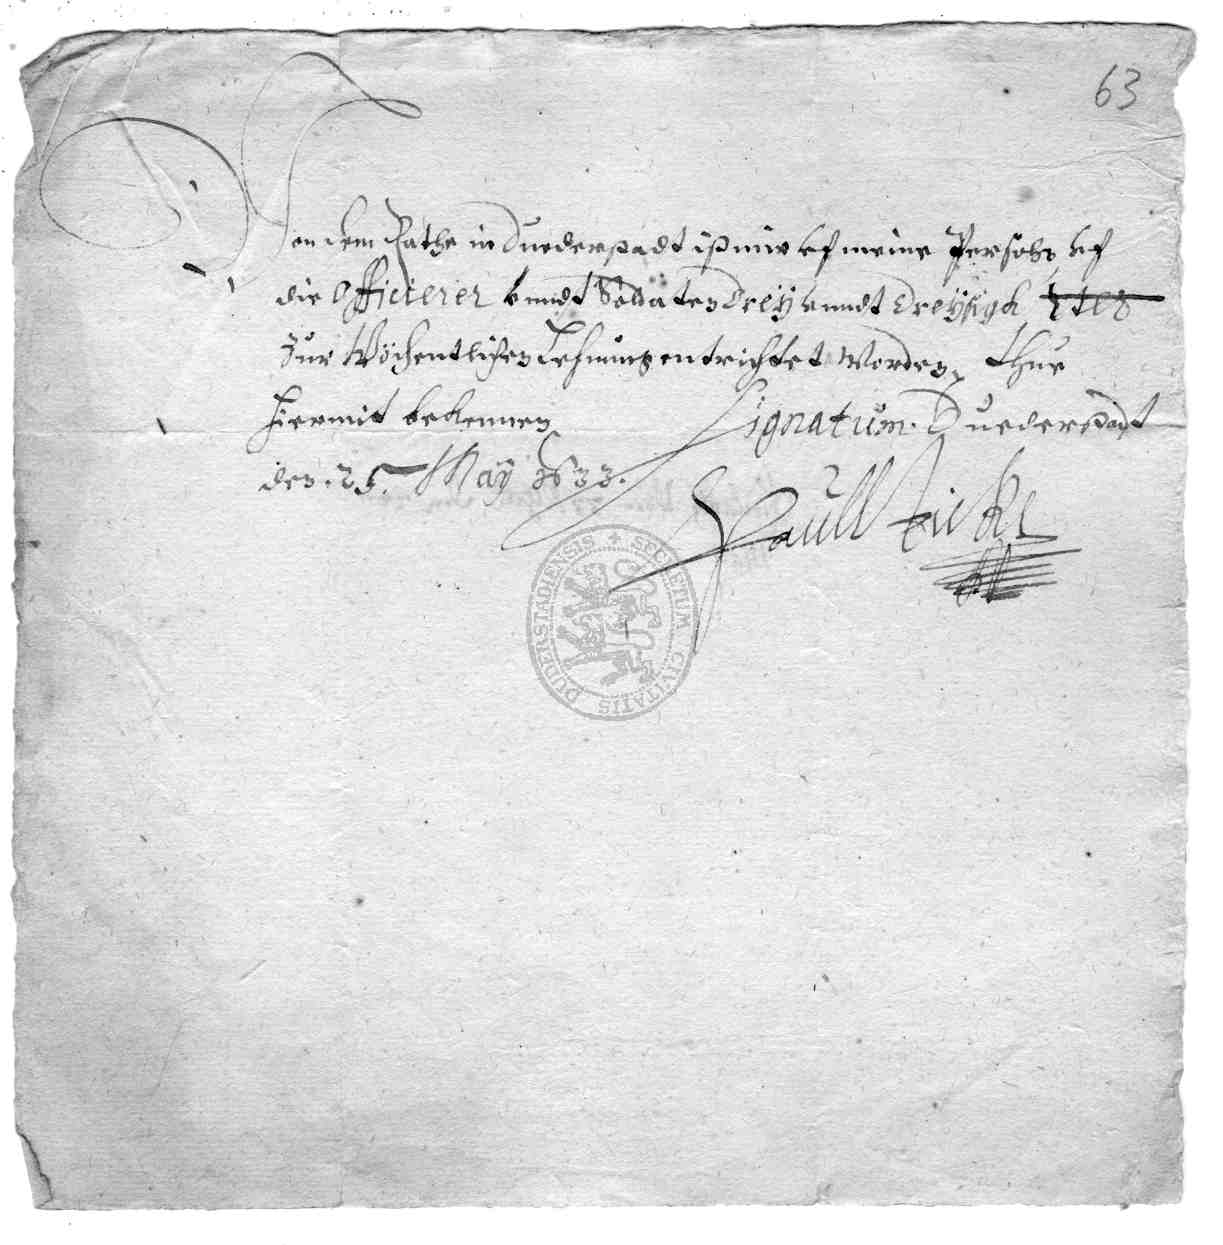 63
Von dem Rathe in Duederstadt ist mir vf meine Persohn vf
die Officierer vnndt Soldaten Dreÿ vnndt Dreÿsigk
Zur Wöchentlichen Lehnung entrichtet worden, thue
hiermit bekennen Signatum Duederstadt
den 25. May 1633.
Paull
SECRETUM CIVITATIS DUDERSTADIENSIS